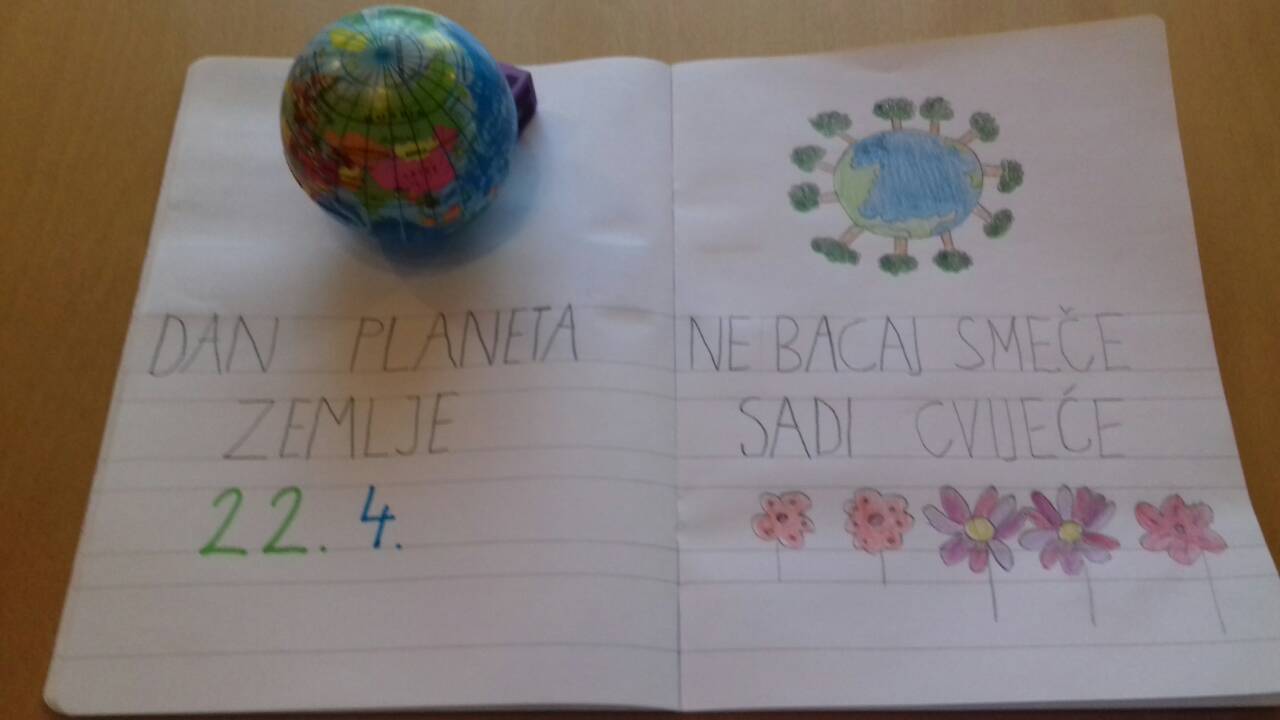 DAN PLANETA
ZEMLJE
22. 4.
NE BACAJ SMEČE
SADI CVIJEĆE